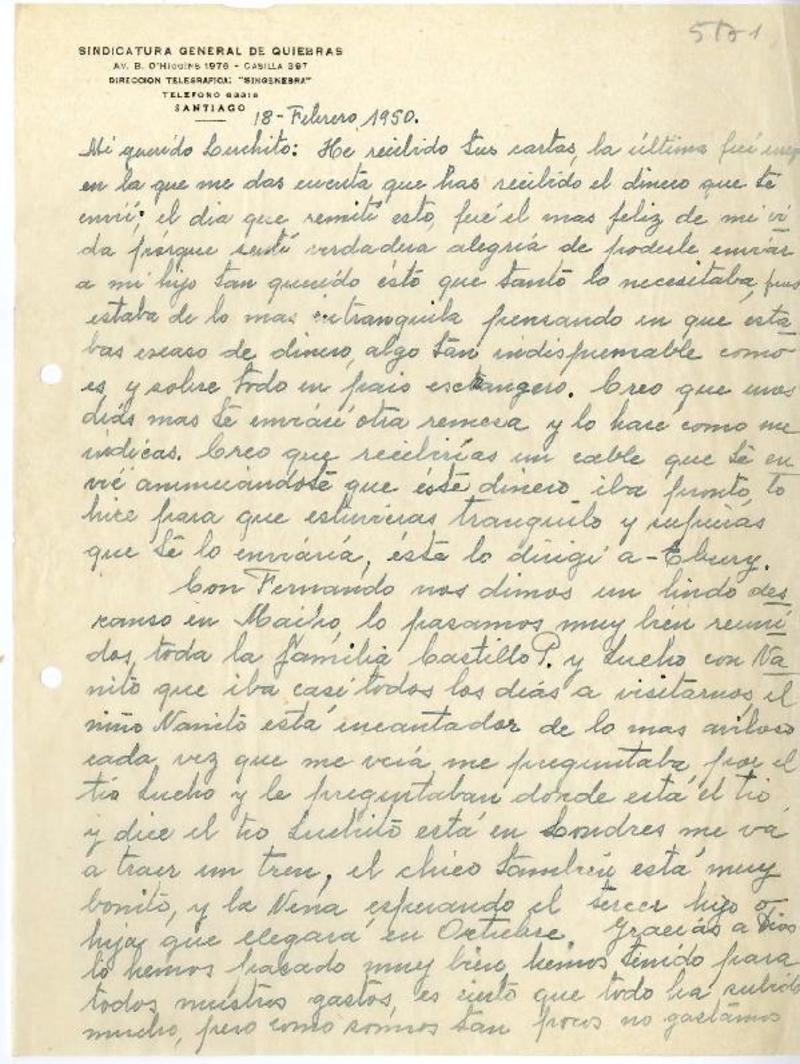 SINDICATURA GENERAL DE QUIEBRAS
AV. B. O'HIGGINS 1976 - CASILLA 397
DIRECCION TELEGRAFICA: "SINGENEBRA"
TELEFONO 83318
SANTIAGO
18-Febrero, 1950.
Mi querido Luchito: He recibido tus cartas, la última fué
en la que me das cuenta que has recibido el dinero que te
envié; el dia que remití esto, fué el mas feliz de mi vi
da pórque sentí verdadera alegriá de poderle enviar
a mi hijo tan querido ésto que tantó lo necesitaba, pues
estaba de lo mas intranquila pensando en que esta
bas escaso de dinero, algo tan indispensable como
es, y sobre todo en pais estrangero. Creo que unos
diás mas te enviaré otra remesa y lo hare como me
indicas. Creo que recibiriás un cable que té en
vié anunciándoté que ésté dinero iba pronto, lo
hice para que estuvieras tranquilo y supierás
que té lo enviáriá, ésta lo dirigi a - Ebury.
Con Fernando nos dimos un lindo des
canso en Maiho, lo pasamos muy bién reuni
dos, toda la familia Castillo P. y Lucho con Na
nito que iba casi todos los diás a visitarnos, el
niño Nanitó está encantador de lo mas
cada vez que me veiá me preguntaba por el
tio Lucho y le preguntaban donde está el tio,
y dice el tio Luchitó está en Londres me va
a traer un tren, el chico también está muy
bonitó, y la Nena esperando el tercer hijo o
hija que llegará en Octubre. Graciás a Dios
lo hemos pasado muy bien hemos tenido para
todos nuestros gastos, es cierto que todo ha subido
mucho, pero como somos tan pocos no gastamos